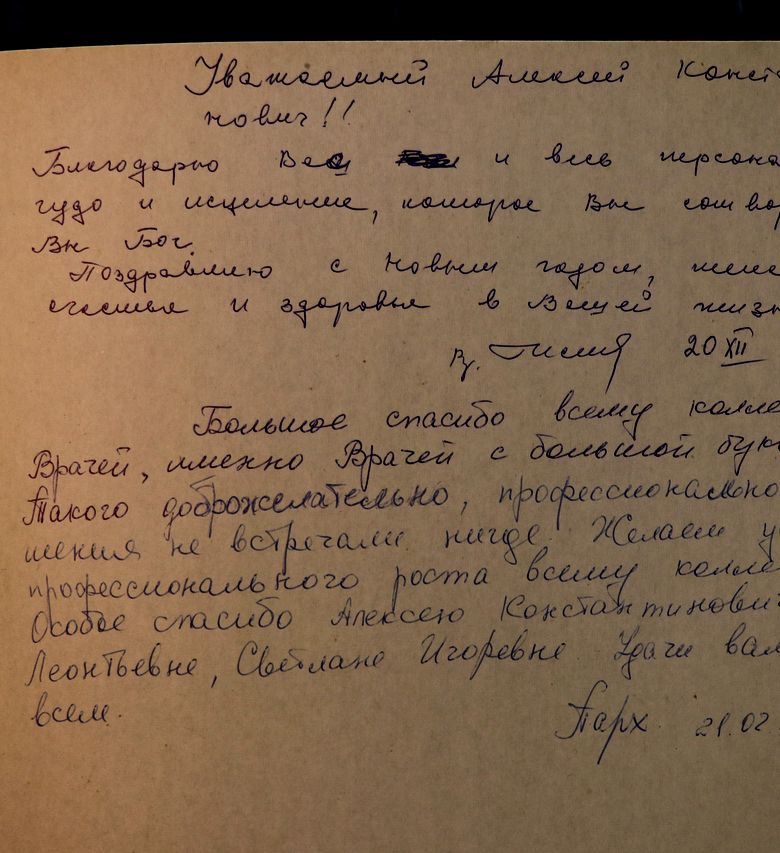 Уважаемый Алексей Конста
нович!!
Благодарю Вас и весь персона
чудо и исцеление, которое Вы сотвор
Вы Бог.
Поздравляю с Новым годом, жела
счастья и здоровья в Вашей жизн
20 XII
Большое спасибо всему колле
Врачей, именно Врачей с большой бук
Такого доброжелательно, профессионально
шения не встречали нигде. Желаем у
профессионального роста всему колле
Особое спасибо Алексею Константинович
Леонтьевне, Светлане Игоревне. Удачи вам
всем.
Парх 21.02